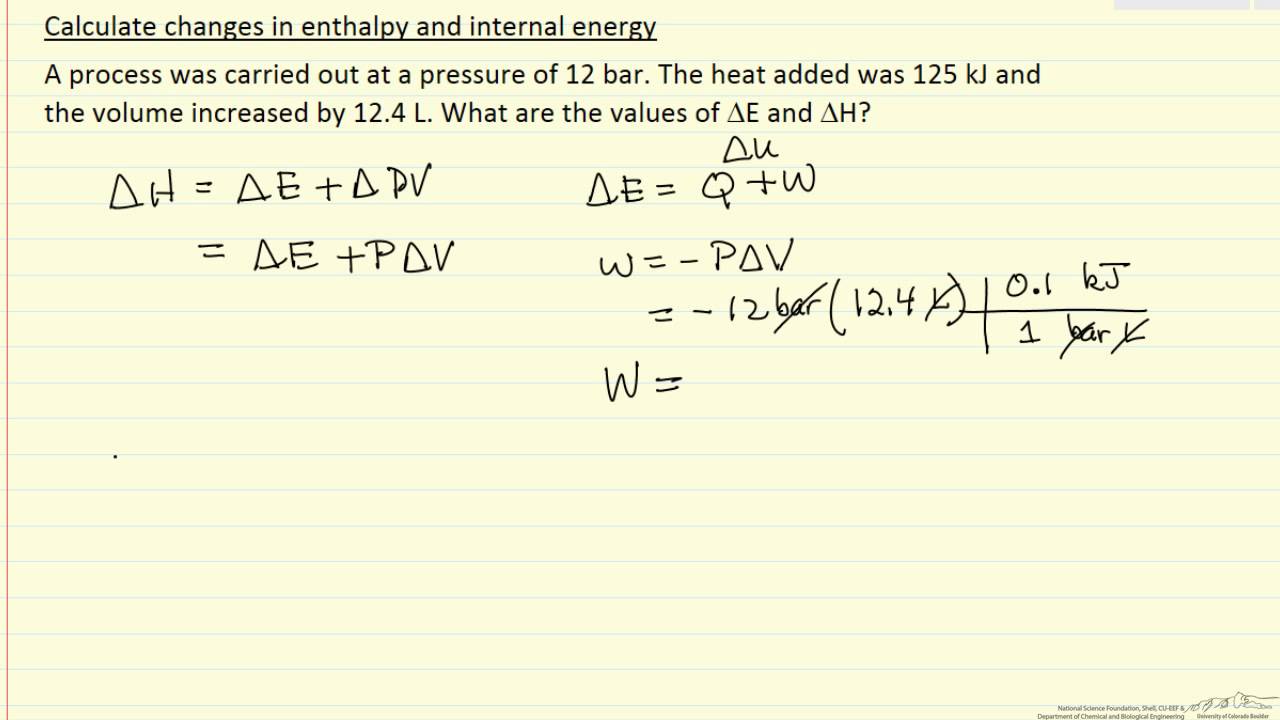 Calculate changes in enthalpy and internal energy
A process was carried out at a pressure of 12 bar. The heat added was 125 kJ and
the volume increased by 12.4 L. What are the values of ΔE and ΔH?
Δu
ΔH = ΔE + Δ PV
ΔE = Q + W
= ΔE + PΔV
W = - PΔV
= - 12 bar (12.4 L) | 0.1 kJ
1 bar L
W =
National Science Foundation, Shell, CU-EEF &
Department of Chemical and Biological Engineering
University of Colorado Boulder